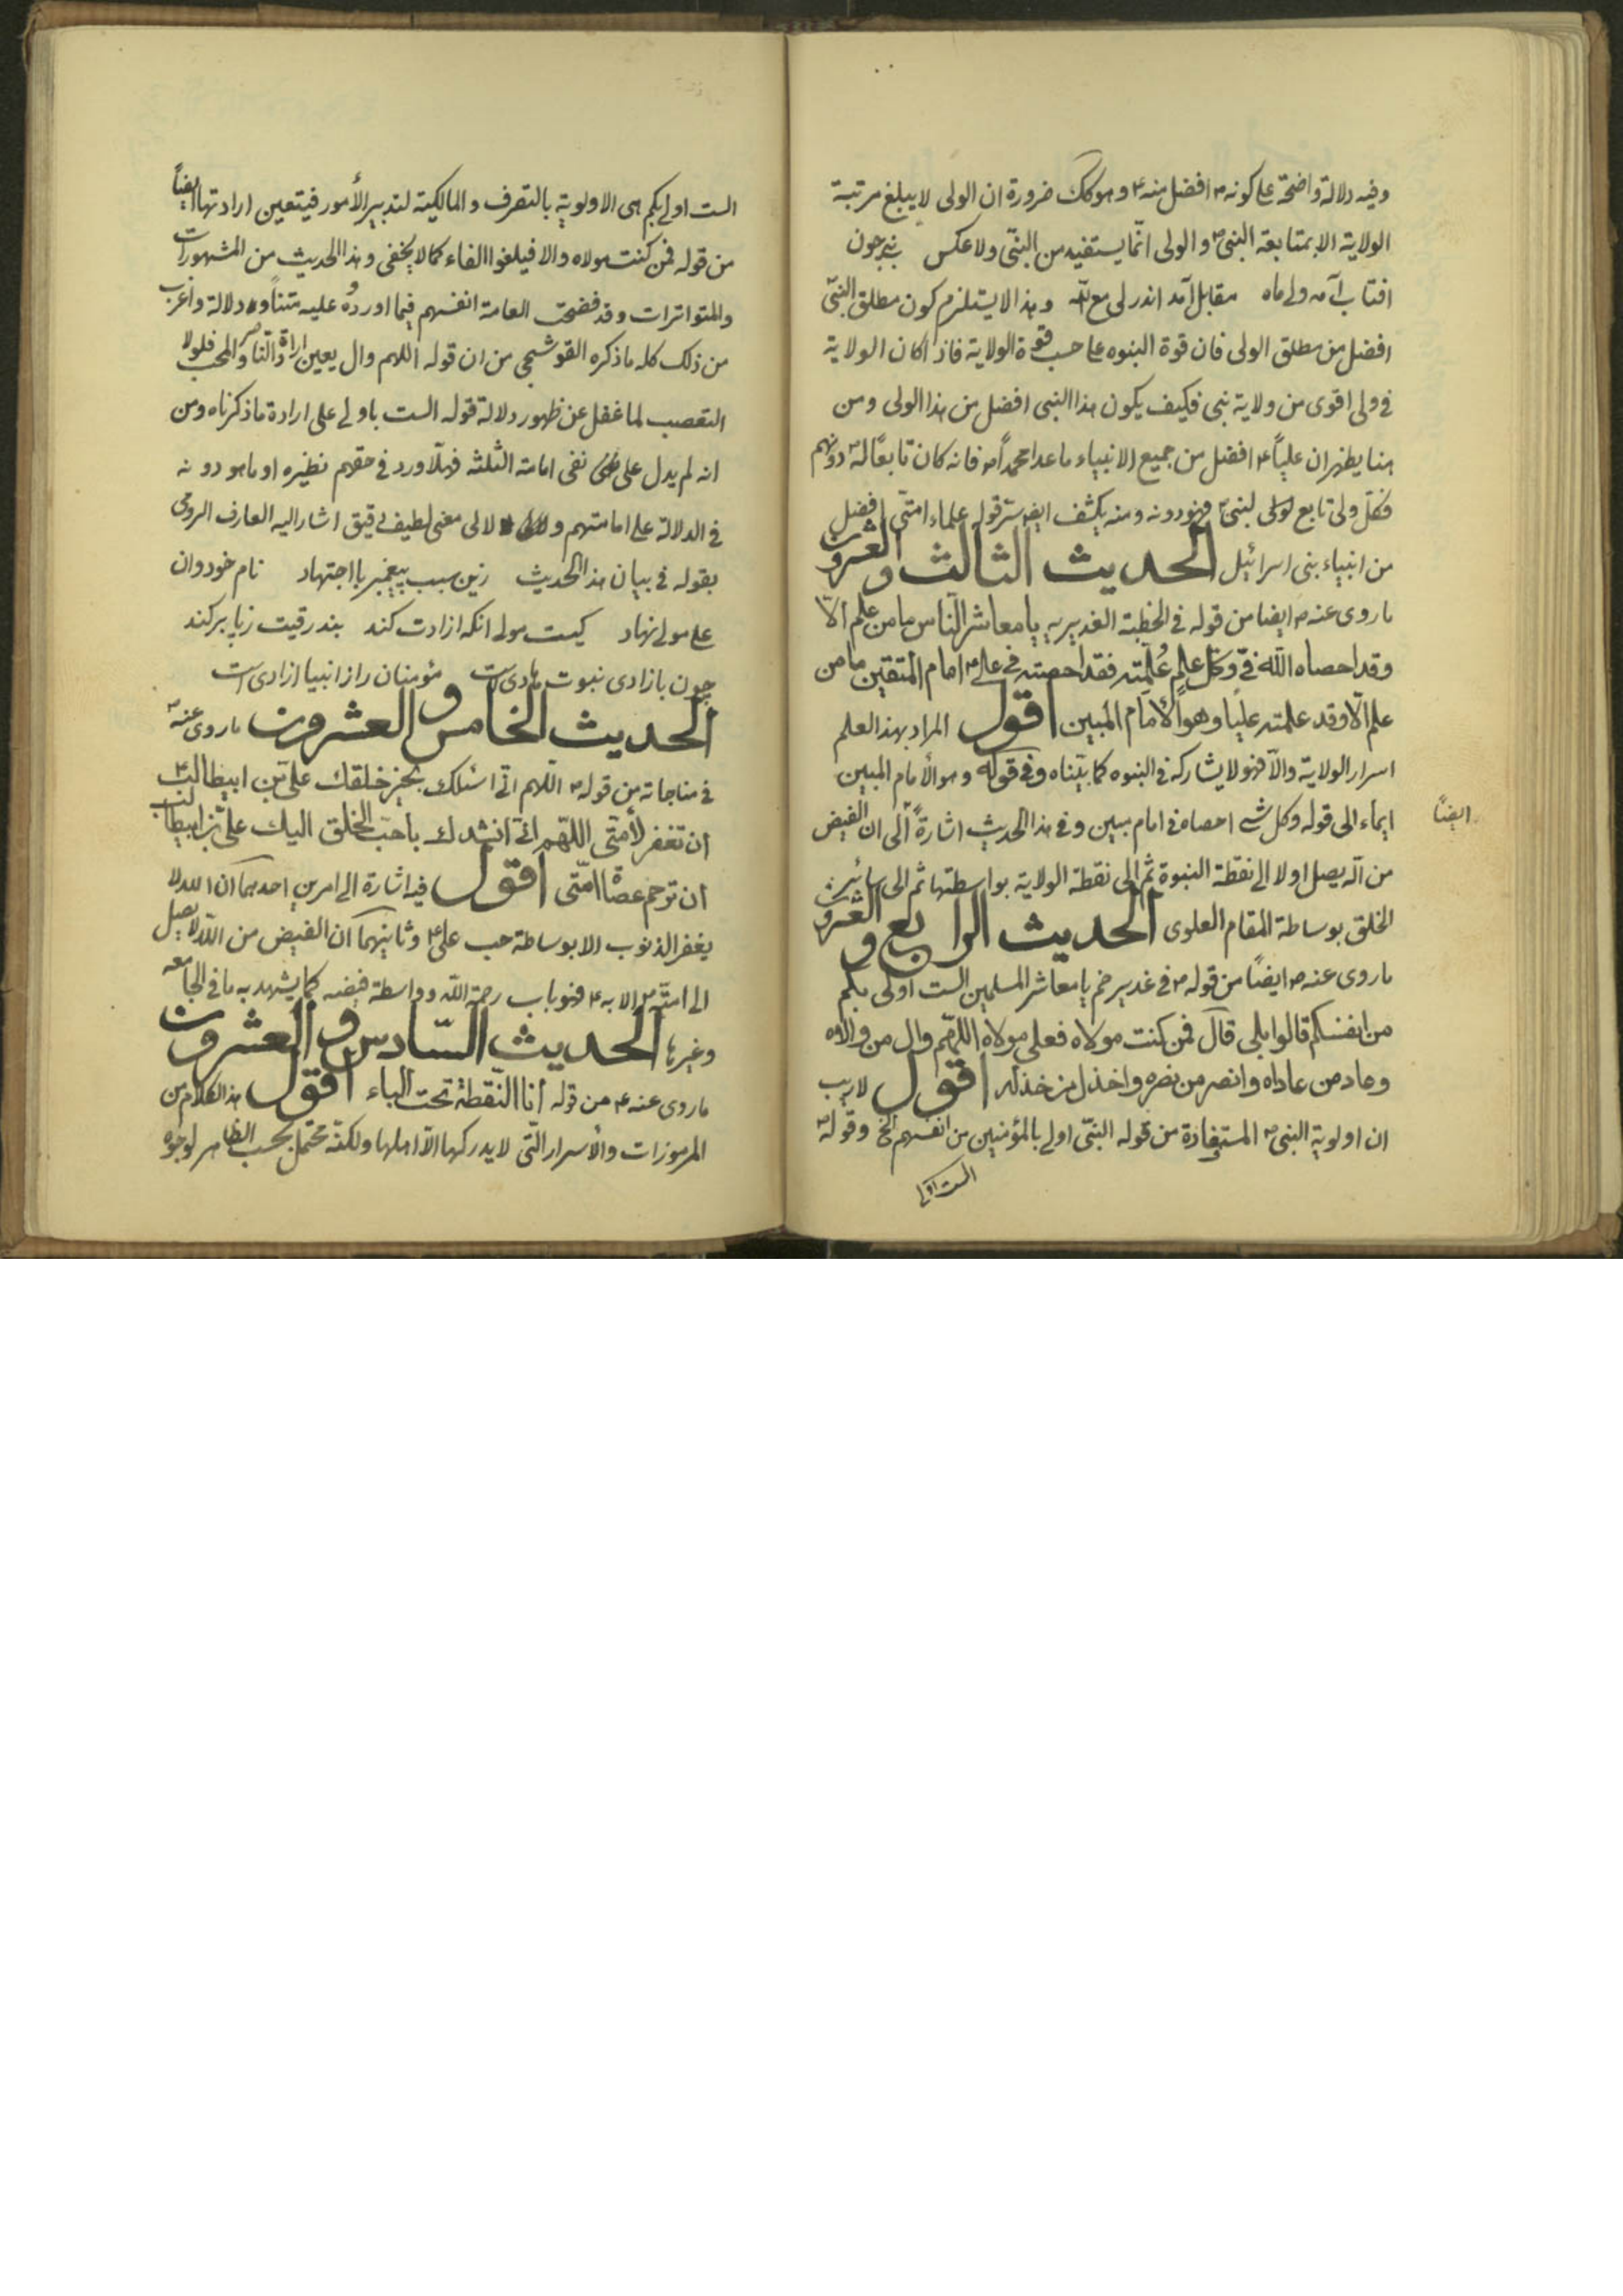 وفيه دلالة واضحة على كونه ص افضل منه ع وهو كك ضرورة ان الولى لا يبلغ مرتبة
الولاية الا بمتابعة النبى ص والولى انما يستفيد من النبى ولا عكس نبى چون
افتاب آمد ولى ماه مقابل آمد اندر لى مع الله وهذا لا يستلزم كون مطلق النبى
افضل من مطلق الولى فان قوة النبوه على حسب قوة الولاية فاذا كان الولاية
فى ولى اقوى من ولاية نبى فكيف يكون هذا النبى افضل من هذا الولى ومن
هنا يظهر ان علياً ع افضل من جميع الانبياء ما عدا محمداً ص فانه كان تابعاً له ص دونهم
فكل ولى تابع لنبى فهو دونه ومنه يكشف ايضا ستر قوله علماء امتى افضل
من انبياء بنى اسرائيل الحديث الثالث والعشرون
ما روى عنه ص ايضا من قوله فى الخطبة الغديريه يا معاشر الناس ما من علم الا
وقد احصاه الله فىّ وكل علم عُلّمته فقد احصيته فى على ع امام المتقين ما من
علم الّا وقد علمته علياً وهو الامام المبين اقول المراد بهذا العلم
اسرار الولاية والّا فهو لا يشاركه فى النبوه كما بيّناه وفى قوله وهو الأمام المبين
ايماء الى قوله وكل شى احصاه فى امام مبين وفى هذا الحديث اشارة ايضاً الى ان الفيض
من الله يصل اولا الى نقطة النبوة ثم الى نقطة الولاية بواسطتها ثم الى سائر
الخلق بوساطة المقام العلوى الحديث الرابع والعشرون
ما روى عنه ص ايضاً من قوله ص فى غدير خم يا معاشر المسلمين الست اولى بكم
من انفسكم قالوا بلى قال فمن كنت مولاه فعلى مولاه اللهم وال من والاه
وعاد من عاداه وانصر من نصره واخذل من خذله اقول لا ريب
ان اولوية النبى ص المستفادة من قوله النبى اولى بالمؤمنين من انفسهم الخ وقوله ص
الست اولى
الست اولى بكم هى الاولوية بالتصرف والمالكية لتدبير الأمور فيتعين ارادتها ايضاً
من قوله فمن كنت مولاه والا فيلغوا الفاء كما لا يخفى وهذا الحديث من المشهورات
والمتواترات وقد فضحت العامة انفسهم فيما اوردوه عليه متناً ودلالة واغرب
من ذلك كله ما ذكره القوشجى من ان قوله اللهم وال يعين ارادة الناصر والمحب فلولا
التعصب لما غفل عن ظهور دلالة قوله الست باولى على ارادة ما ذكرناه ومن
انه لم يدل على نفى امامة الثلثة فهلا ورد فى حقهم نظيره او ما هو دونه
فى الدلالة على امامتهم ولا لى معنى لطيف دقيق اشار اليه العارف الرومى
بقوله فى بيان هذا الحديث زين سبب پيغمبر با اجتهاد نام خود وان
على مولى نهاد كيست مولى انكه ازادت كند بند رقيت زپا بر كند
چون بازادى نبوت هادى است مؤمنان را ز انبيا ازادى است
الحديث الخامس والعشرون ما روى عنه ص
فى مناجاته من قوله ص اللهم انى اسئلك بخير خلقك على بن ابيطالب ع
ان تغفر لأمتى اللهم انى انشدك باحب الخلق اليك على بن ابيطالب
ان ترحم عصاة امتى اقول فيه اشارة الى امرين احدهما ان الله لا
يغفر الذنوب الا بوساطة حب على ع وثانيهما ان الفيض من الله لا يصل
الى امته ص الا به ع فهو باب رحمة الله وواسطة فيضه كما يشهد به ما فى الجامعه
وغيرها الحديث السادس والعشرون
ما روى عنه ع من قوله انا النقطة تحت الباء اقول هذا الكلام من
المرموزات والأسرار التى لا يدركها الا اهلها ولكنه محتمل بحسب الظاهر لوجوه